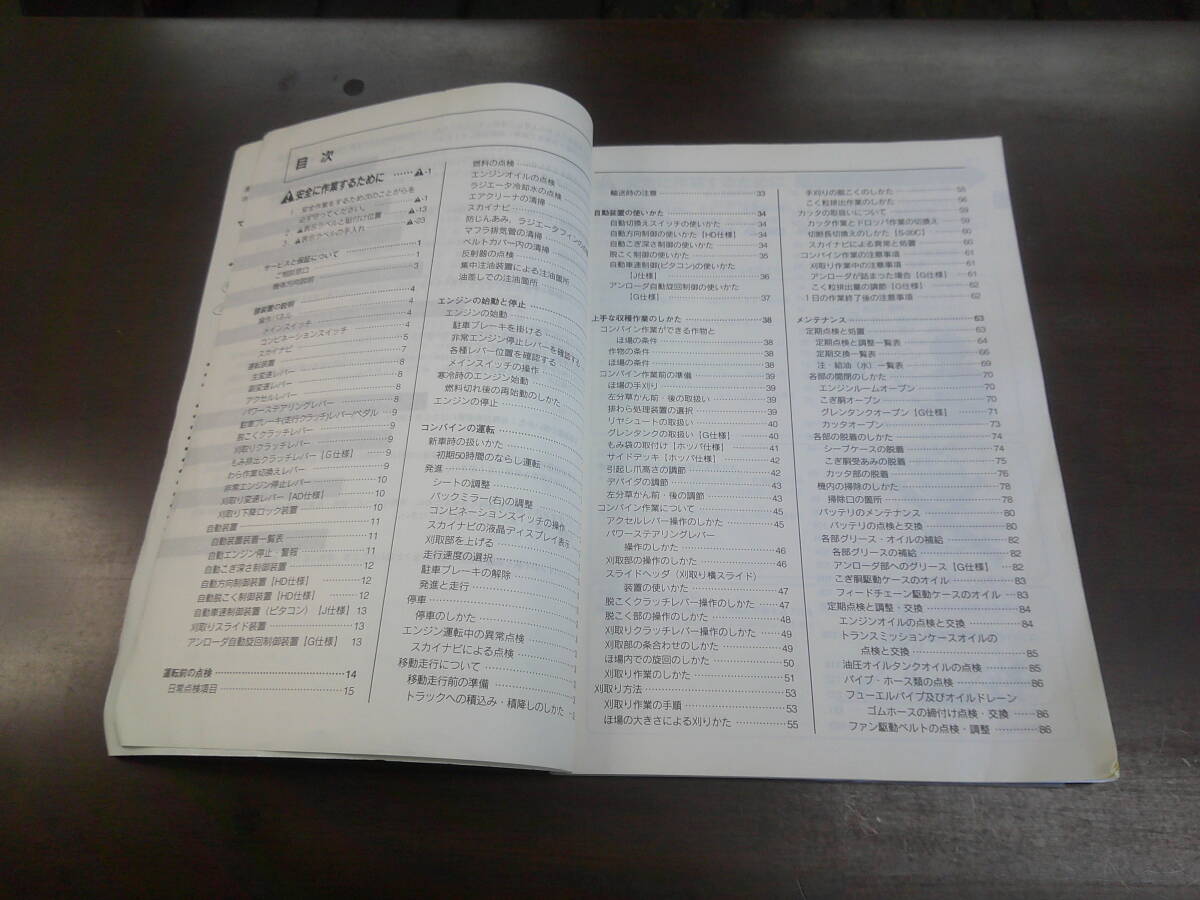 目 次
⚠安全に作業するために ……⚠-1
1. 安全作業をするため次のことがらを
必ず守ってください。 ⚠-1
2. ⚠表示ラベルと貼付け位置 ⚠-13
3. ⚠表示ラベルの手入れ ⚠-23
サービスと保証について 1
ご相談窓口 1
機体方向説明 3
各装置の説明 4
操作パネル 4
メインスイッチ 4
コンビネーションスイッチ 5
スカイナビ 7
運転装置 8
主変速レバー 8
副変速レバー 8
アクセルレバー 8
パワーステアリングレバー 8
駐車ブレーキ(走行クラッチ)レバー/ペダル 9
脱こくクラッチレバー 9
刈取りクラッチレバー 9
もみ排出クラッチレバー【G仕様】 9
わら作業切換えレバー 9
非常エンジン停止レバー 10
刈取り変速レバー【AD仕様】 10
刈取り下降ロック装置 10
自動装置 11
自動装置装着一覧表 11
自動エンジン停止・警報 11
自動こぎ深さ制御装置 12
自動方向制御装置【HD仕様】 12
自動脱こく制御装置【HD仕様】 12
自動車速制御装置(ピタコン)【J仕様】 13
刈取りスライド装置 13
アンローダ自動旋回制御装置【G仕様】 13
運転前の点検 14
日常点検項目 15
燃料の点検
エンジンオイルの点検
ラジエータ冷却水の点検
エアクリーナの清掃
スカイナビ
防じんあみ、ラジエータフィンの
マフラ排気管の清掃
ベルトカバー内の清掃
反射器の点検
集中注油装置による注油箇所
油差しでの注油箇所
エンジンの始動と停止
エンジンの始動
駐車ブレーキを掛ける
非常エンジン停止レバーを確認する
各種レバー位置を確認する
メインスイッチの操作
寒冷時のエンジン始動
燃料切れ後の再始動のしかた
エンジンの停止
コンバインの運転
新車時の扱いかた
初期50時間のならし運転
発進
シートの調整
バックミラー(右)の調整
コンビネーションスイッチの操作
スカイナビの液晶ディスプレイ表示
刈取部を上げる
走行速度の選択
駐車ブレーキの解除
発進と走行
停車
停車のしかた
エンジン運転中の異常点検
スカイナビによる点検
移動走行について
移動走行前の準備
トラックへの積込み・積降しのしかた
輸送時の注意 33
自動装置の使いかた 34
自動切換えスイッチの使いかた 34
自動方向制御の使いかた【HD仕様】 34
自動こぎ深さ制御の使いかた 34
脱こく制御の使いかた 35
自動車速制御(ピタコン)の使いかた
【J仕様】 36
アンローダ自動旋回制御の使いかた
【G仕様】 37
上手な収穫作業のしかた 38
コンバイン作業ができる作物と
ほ場の条件 38
作物の条件 38
ほ場の条件 38
コンバイン作業前の準備 39
ほ場の手刈り 39
左分草かん前・後の取扱い 39
排わら処理装置の選択 39
リヤシュートの取扱い 40
グレンタンクの取扱い【G仕様】 40
もみ袋の取付け【ホッパ仕様】 41
サイドデッキ【ホッパ仕様】 42
引起し爪高さの調節 42
デバイダの調節 43
左分草かん前・後の調節 43
コンバイン作業について 45
アクセルレバー操作のしかた 45
パワーステアリングレバー
操作のしかた 46
刈取部の操作のしかた 46
スライドヘッダ(刈取り横スライド)
装置の使いかた 47
脱こくクラッチレバー操作のしかた 47
脱こく部の操作のしかた 48
刈取りクラッチレバー操作のしかた 49
刈取部の条合わせのしかた 49
ほ場内での旋回のしかた 50
刈取り作業のしかた 51
刈取り方法 53
刈取り作業の手順 53
ほ場の大きさによる刈りかた 55
手刈りの脱こくのしかた 58
こく粒排出作業のしかた 58
カッタの取扱いについて 59
カッタ作業とドロッパ作業の切換え 59
切断長切換えのしかた【S-35C】 60
スカイナビによる異常と処置 60
コンバイン作業の注意事項 61
刈取り作業中の注意事項 61
アンローダが詰まった場合【G仕様】 61
こく粒排出量の調節【G仕様】 62
1日の作業終了後の注意事項 62
メンテナンス 63
定期点検と処置 63
定期点検と調整一覧表 64
定期交換一覧表 66
注・給油(水)一覧表 69
各部の開閉のしかた 70
エンジンルームオープン 70
こぎ胴オープン 70
グレンタンクオープン【G仕様】 71
カッタオープン 73
各部の脱着のしかた 74
シーブケースの脱着 74
こぎ胴受あみの脱着 75
カッタ部の脱着 76
機内の掃除のしかた 78
掃除口の箇所 78
バッテリのメンテナンス 80
バッテリの点検と交換 80
各部グリース・オイルの補給 82
各部グリースの補給 82
アンローダ部へのグリース【G仕様】 82
こぎ胴駆動ケースのオイル 83
フィードチェーン駆動ケースのオイル 83
定期点検と調整・交換 84
エンジンオイルの点検と交換 84
トランスミッションケースオイルの
点検と交換 85
油圧オイルタンクオイルの点検 85
パイプ・ホース類の点検 86
フューエルパイプ及びオイルドレーン
ゴムホースの締付け点検・交換 86
ファン駆動ベルトの点検・調整 86